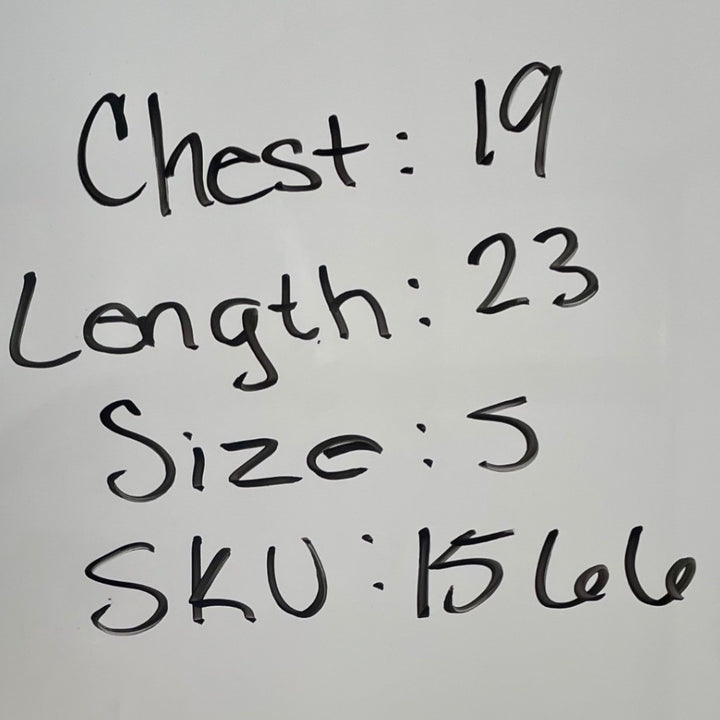 Chest: 19
Length: 23
Size: 5
SKU: 1566